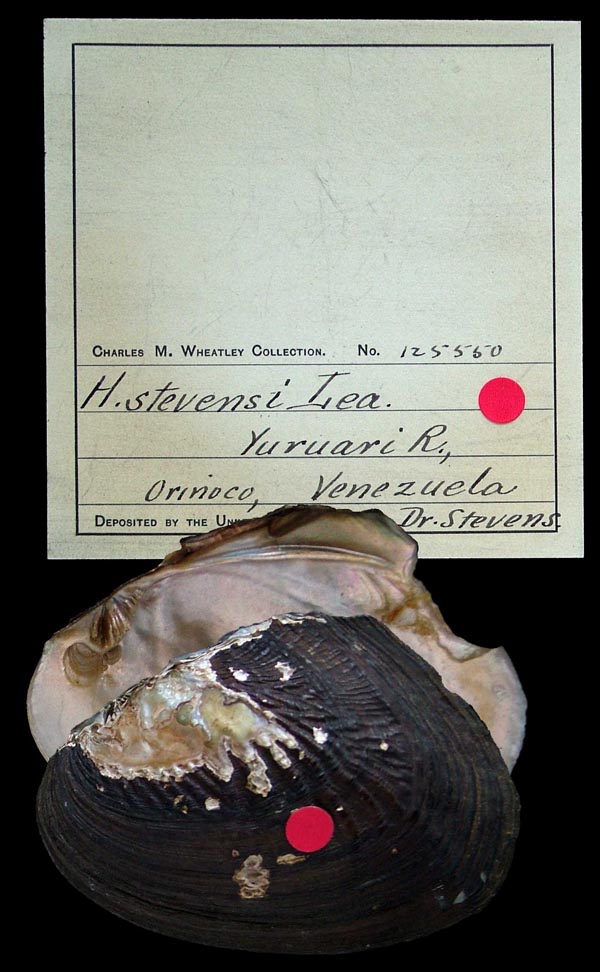 CHARLES M. WHEATLEY COLLECTION. No. 125550
H. stevensi Lea.
Yuruari R.,
Orinoco, Venezuela
DEPOSITED BY THE Dr. Stevens.